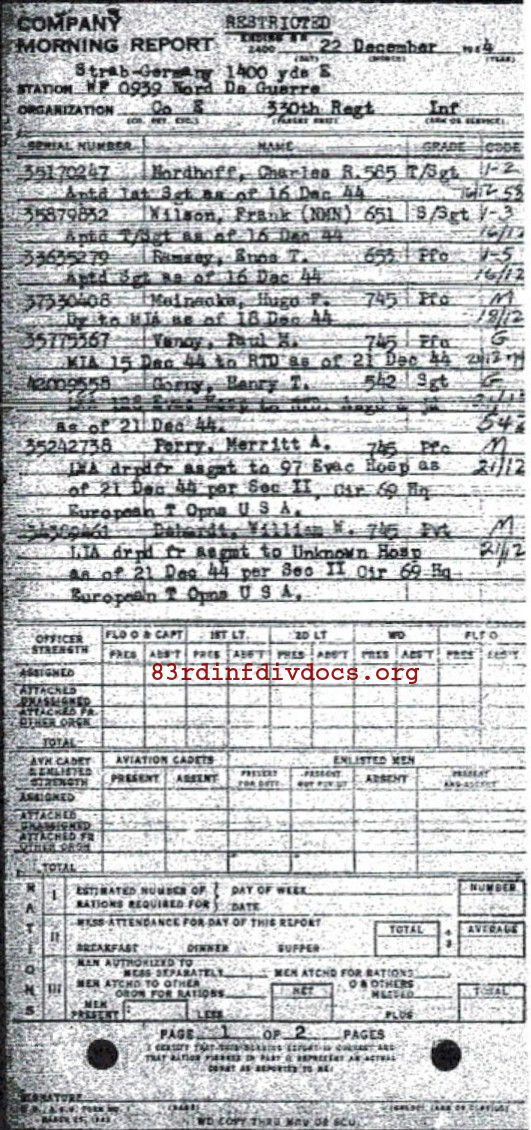 COMPANY
MORNING REPORT
RESTRICTED
ENDING
2400 22 December 194 4
(DAY) (MONTH) (YEAR)
Strab-Germany 1400 yds E
STATION WF 0939 Nord De Guerre
ORGANIZATION Co E 330th Regt Inf
(CO. DET. ETC.) (PARENT UNIT) (ARM OR SERVICE)
SERIAL NUMBER NAME GRADE CODE
35170247 Nordhoff, Charles R. 585 T/Sgt 1-2
Aptd 1st Sgt as of 16 Dec 44 16/12 585
35879832 Wilson, Frank (NMN) 651 S/Sgt 1-3
Aptd T/Sgt as of 16 Dec 44 16/12
33635279 Ramsey, Enos T. 653 Pfc 1-5
Aptd Sgt as of 16 Dec 44 16/12
37330408 Meinecke, Hugo F. 745 Pfc M
Dy to MIA as of 18 Dec 44 18/12
35775367 Paul M. 745 Pfc G
MIA 15 Dec 44 to RTD as of 21 Dec 44
42009558 Gorny, Henry T. 542 Sgt G
Evac Hosp to RTD. 21/12
as of 21 Dec 44. 542
35242738 Perry, Merritt A. 745 Pfc M
LWA drpd fr asgmt to 97 Evac Hosp as 21/12
of 21 Dec 44 per Sec II, Cir 69 Hq
European T Opns U S A.
William W. 745 Pvt M
LIA drpd fr asgmt to Unknown Hosp 21/12
as of 21 Dec 44 per Sec II Cir 69 Hq
European T Opns U S A.
OFFICER STRENGTH FLD O & CAPT 1ST LT 2D LT WO FLT O
PRES ABS'T PRES ABS'T PRES ABS'T PRES ABS'T PRES ABS'T
83rdinfdivdocs.org
ASSIGNED
ATTACHED UNASSIGNED
ATTACHED FR OTHER ORGN
TOTAL
AVN CADET & ENLISTED STRENGTH AVIATION CADETS ENLISTED MEN
PRESENT ABSENT PRESENT FOR DUTY PRESENT NOT FOR DUTY ABSENT PRESENT AND ABSENT
ASSIGNED
ATTACHED UNASSIGNED
ATTACHED FR OTHER ORGN
TOTAL
RATIONS
I ESTIMATED NUMBER OF RATIONS REQUIRED FOR DAY OF WEEK DATE NUMBER
II MESS ATTENDANCE FOR DAY OF THIS REPORT TOTAL ÷ 3 AVERAGE
BREAKFAST DINNER SUPPER
III MEN AUTHORIZED TO MESS SEPARATELY MEN ATCHD FOR RATIONS
MEN ATCHD TO OTHER ORGN FOR RATIONS NET O & OTHERS MESSED TOTAL
MEN PRESENT LESS PLUS
PAGE 1 OF 2 PAGES
I CERTIFY THAT THIS MORNING REPORT IS CORRECT AND
THAT RATION FIGURES IN PART II REPRESENT AN ACTUAL
COUNT AS REPORTED TO ME:
SIGNATURE
W.D., A.G.O. FORM NO. 1 (NAME) (GRADE) (ARM OR SERVICE)
WD COPY THRU MRU OR SCU